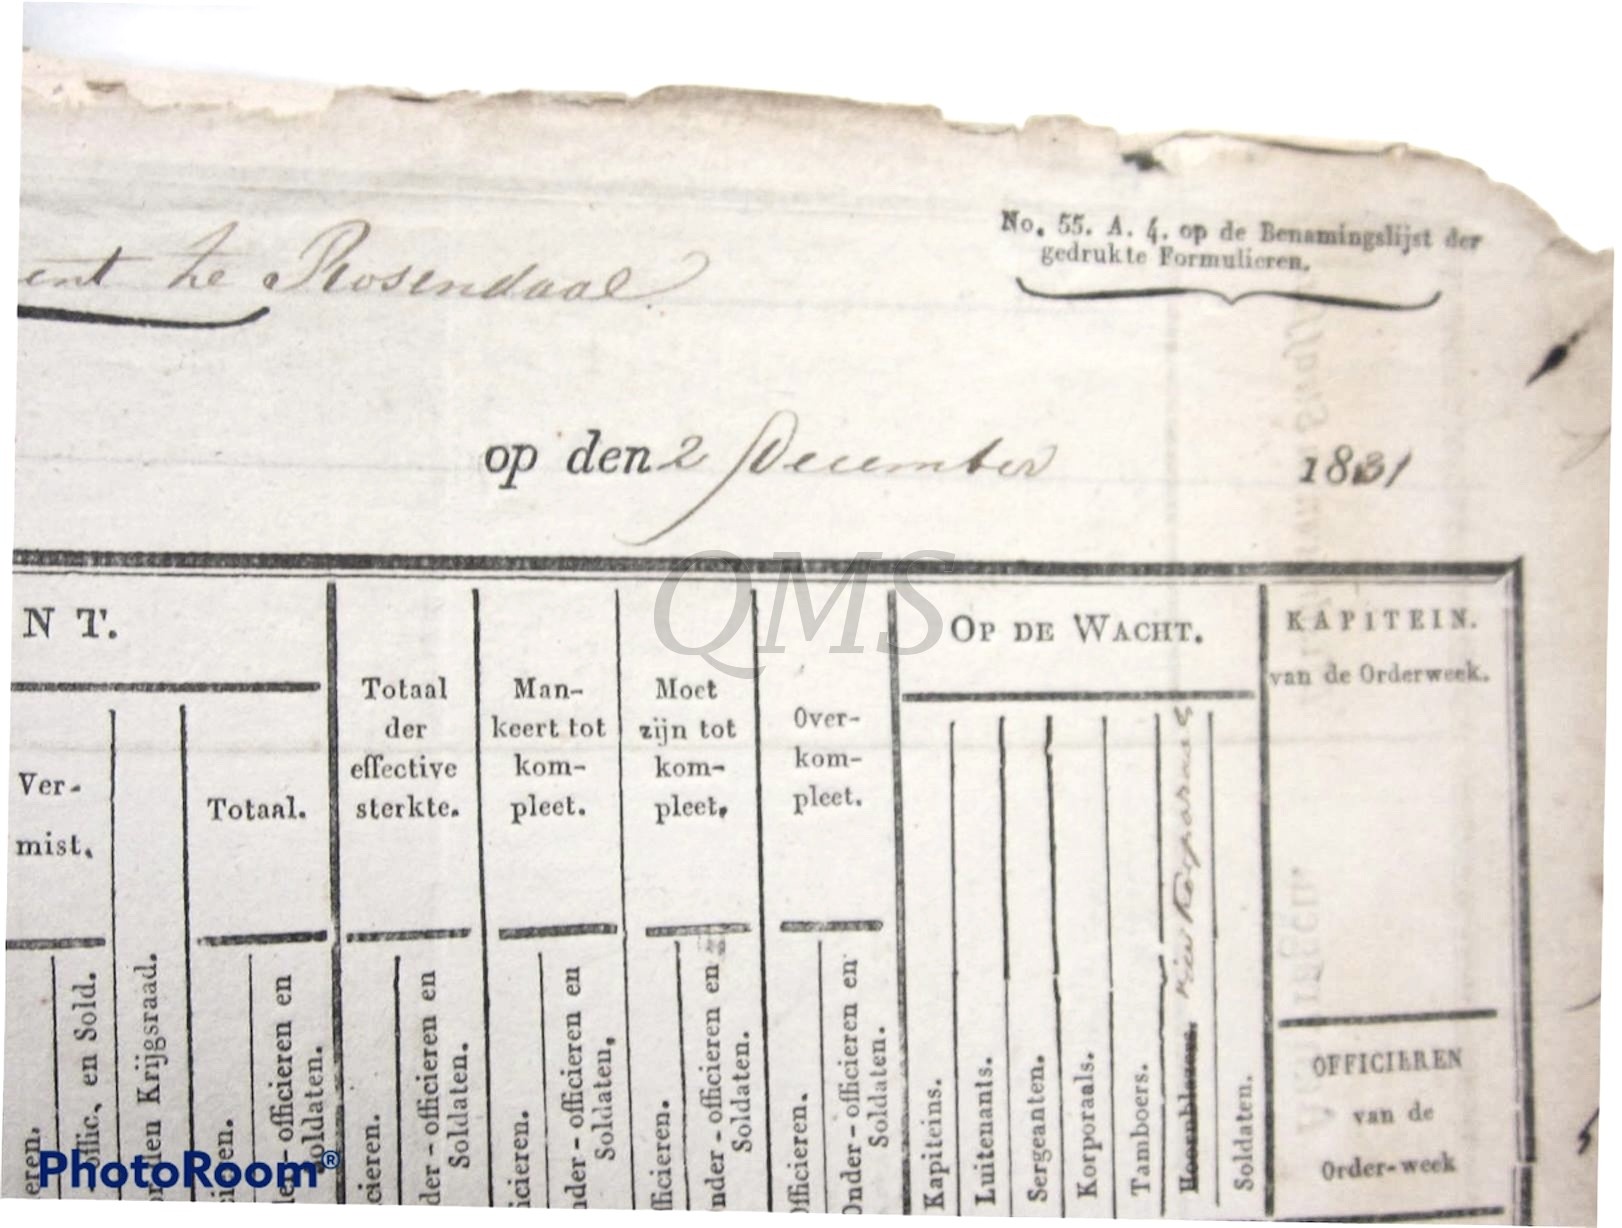 No. 55. A. 4. op de Benamingslijst der
gedrukte Formulieren.
ent te Rosendaal
op den 2 December 1831
QMS
N T.
Ver-
mist.
Totaal.
Totaal
der
effective
sterkte.
Man-
keert tot
kom-
pleet.
Moet
zijn tot
kom-
pleet.
Over-
kom-
pleet.
OP DE WACHT.
KAPITEIN.
van de Orderweek.
eren.
offic., en Sold.
den Krijgsraad.
en.
der-officieren en
Soldaten.
cieren.
der-officieren en
Soldaten.
icieren.
nder-officieren en
Soldaten.
fficieren.
nder-officieren en
Soldaten.
Officieren.
Onder-officieren en
Soldaten.
Kapiteins.
Luitenants.
Sergeanten.
Korporaals.
Tamboers.
Hoornblazers.
Soldaten.
OFFICIEREN
van de
Order-week
PhotoRoom®